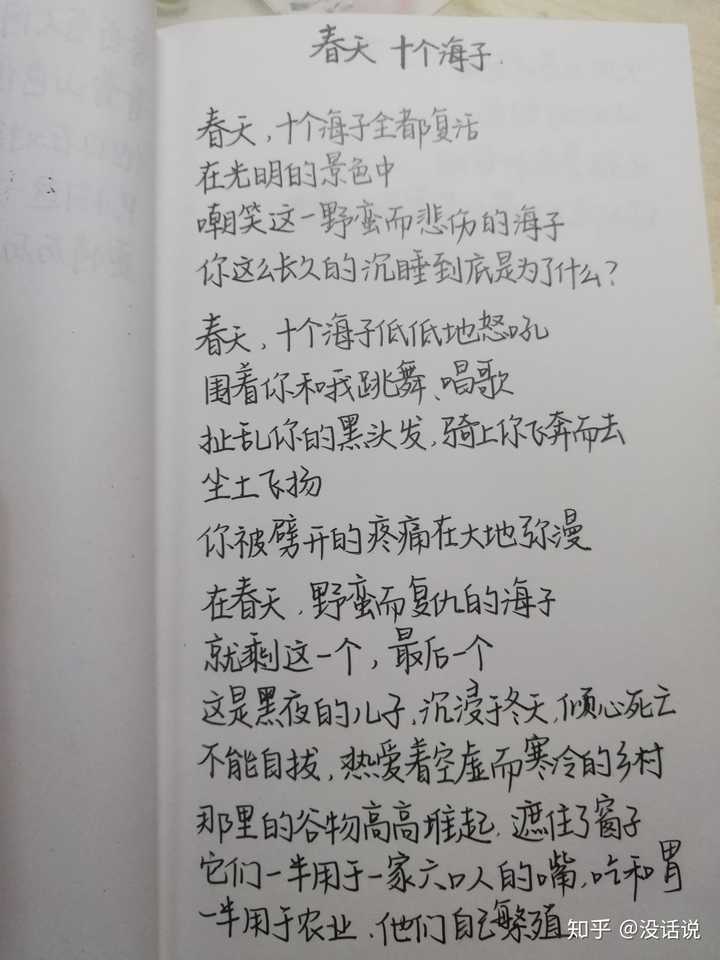 春天 十个海子.
春天,十个海子全都复活
在光明的景色中
嘲笑这一野蛮而悲伤的海子
你这么长久的沉睡到底是为了什么?
春天,十个海子低低地怒吼
围着你和我跳舞、唱歌
扯乱你的黑头发,骑上你飞奔而去
尘土飞扬
你被劈开的疼痛在大地弥漫
在春天,野蛮而复仇的海子
就剩这一个,最后一个
这是黑夜的儿子,沉浸于冬天,倾心死亡
不能自拔,热爱着空虚而寒冷的乡村
那里的谷物高高堆起,遮住了窗子
它们一半用于一家六口人的嘴,吃和胃
一半用于农业,他们自己繁殖
知乎 @没话说